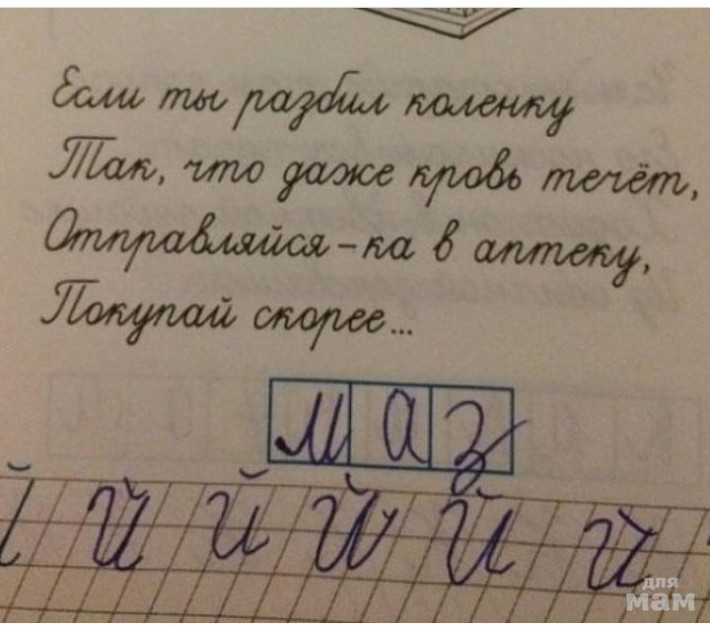 Если ты разбил коленку
Так, что даже кровь течёт,
Отправляйся-ка в аптеку,
Покупай скорее...
маз
й й й й й й
для
мам